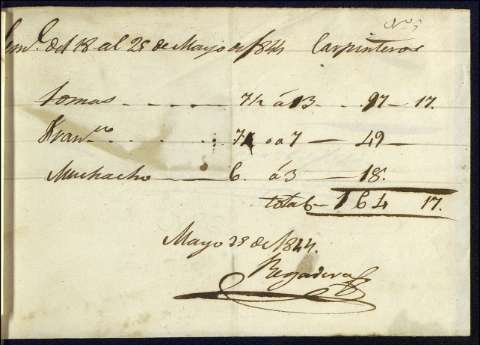 Sem.ª del 18 al 25 de Mayo de 1844 Carpinteros
tomas - - - - 7½ á 13 - 97 - 17.
Fran.co - - - 7 a 7 - 49 -
Muchacho - - - 6. á 3 - 18.
total - 164 17.
Mayo 25 de 1844.